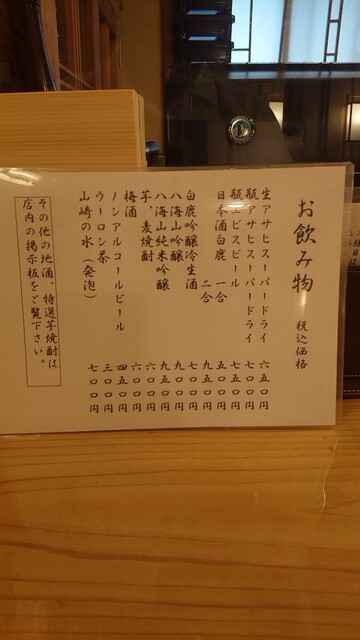 お飲み物 税込価格
生アサヒスーパードライ 六五〇円
瓶アサヒスーパードライ 七〇〇円
瓶エビスビール 七五〇円
日本酒白鹿 一合 五〇〇円
二合 九五〇円
白鹿吟醸冷生酒 七〇〇円
八海山吟醸 九〇〇円
八海山純米吟醸 九五〇円
芋、麦焼酎 六〇〇円
梅酒 六〇〇円
ノンアルコールビール 四五〇円
ウーロン茶 三〇〇円
山崎の水（発泡） 七〇〇円
その他の地酒、特選芋焼酎は
店内の掲示板をご覧下さい。